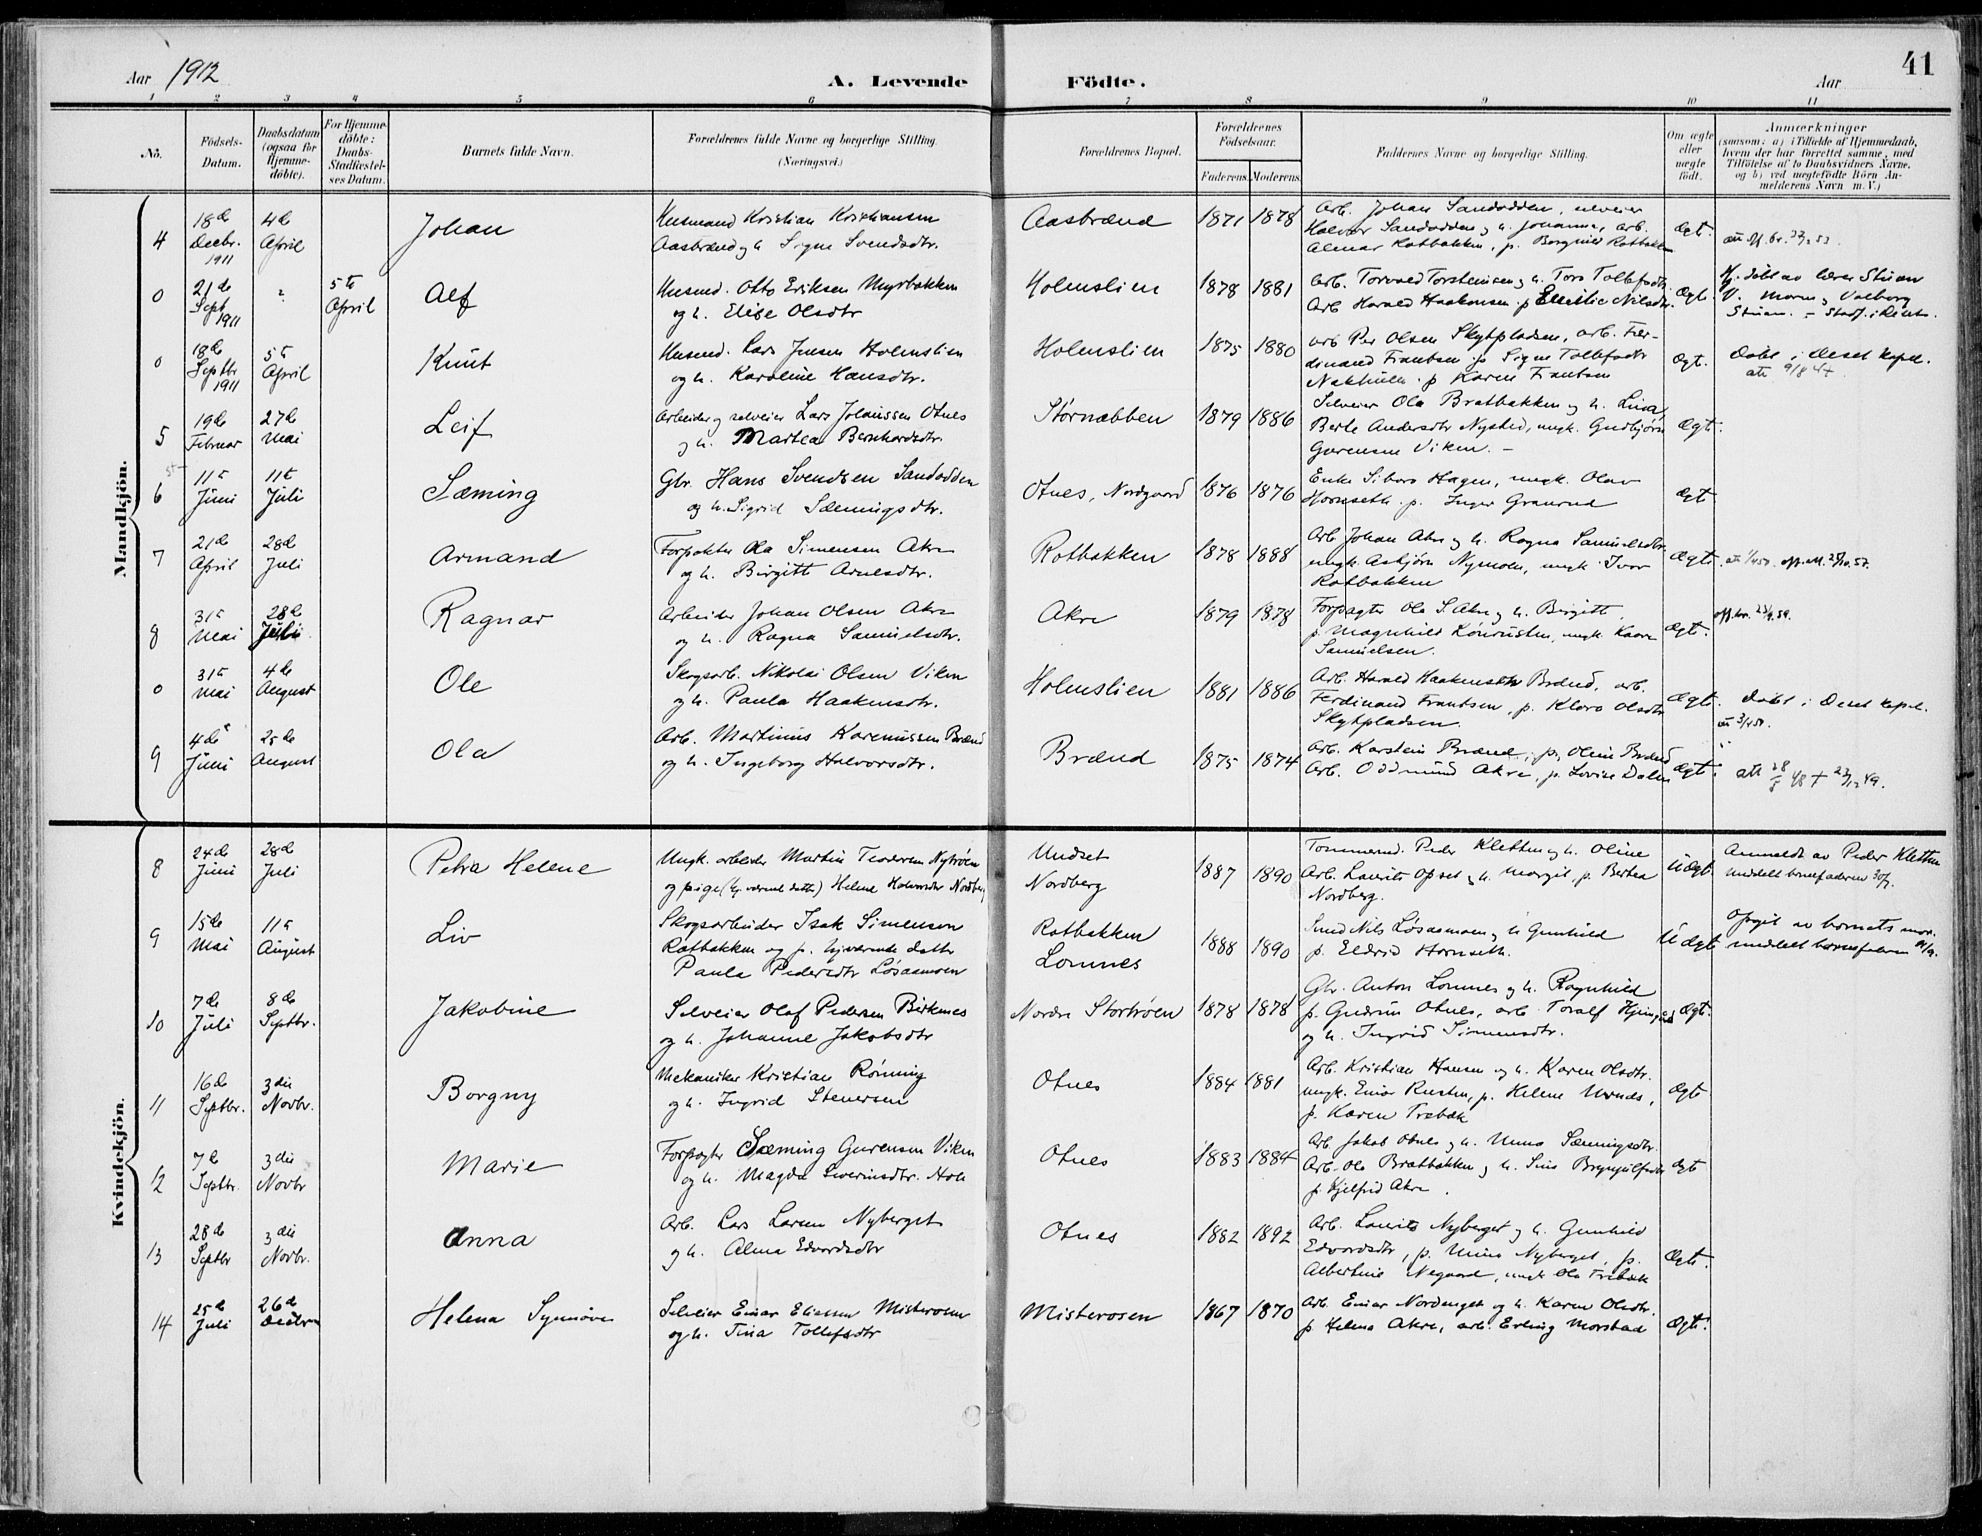 Aar 1912
A. Levende Födte.
Aar
41
1 2 3 4 5 6 7 8 9 10 11
No.
Födsels-
Datum.
Daabsdatum
(ogsaa för
Hjemme-
döbte).
For Hjemme-
döbte:
Daabs-
Stadfæstel-
ses Datum.
Barnets fulde Navn.
Forældrenes fulde Navne og borgerlige Stilling.
(Næringsvei.)
Forældrenes Bopæl.
Forældrenes
Födselsaar.
Faderens. Moderens.
Faddernes Navne og borgerlige Stilling.
Om ægte
eller
uægte
födt.
Anmærkninger
(saasom: a) i Tilfælde af Hjemmedaab,
hvem der har forrettet samme, med
Tilföielse af to Daabsvidners Navne,
og b) ved uegtefödte Börn An-
melderens Navn m. V.)
Mandkjön.
4
18de
Decbr.
1911
4de
April
Johan
Husmand Kristian Kristiansen
Aasbrænd og h. Signe Svendsdtr.
Aasbrænd
1871 1878
Arb. Johan Sandodden, selveier
Halvor Sandodden og h. Johanne, arb.
Almar Ratbakken, p. Borghild Ratbakken
Ægt.
0
21de
Sept
1911
5te
April
Alf
Husmd. Otto Eriksen Myrbakken
og h. Elise Olsdtr
Holmslien
1878 1881
Arb. Torvald Torstensen og h. Tora Tollefsdtr.
Arb Harald Haakensen p Nilsdtr.
Ægt.
Hj. døbt av lærer Stuen
V. Maren og Valborg
Stuen. – Stadf. i Kirken.
0
18de
Septbr
1911
5te
April
Knut
Husmd. Lars Jensen Holmslien
og h. Karoline Hansdtr.
Holmslien
1875 1880
arb Per Olsen Skytpladsen, arb. Fer-
dinand Frantsen p Signe Tollefsdtr
p Karen Frantsen
Ægt.
Døbt i Deset kapel.
5
19de
Februar
27de
Mai
Leif
Arbeider og selveier Lars Johansen Otnes
og h. Martea Bernhardsdtr.
Størnæbben
1879 1886
Selveier Ola Bratbakken og h. Lina,
Berte Andersdtr Nysted, ungk. Gudbjørn
Gurensen Viken. –
Ægt.
6
11te
Juni
11te
Juli
Sæming
Gbr. Hans Svendsen Sandodden
og h. Sigrid Sæmingsdtr.
Otnes, Nordgaard
1876 1876
Enke Siboro Hagen, ungk. Olav
Hornseth. p. Inger Granrud
Ægt
7
21de
April
28de
Juli
Armand
Forpakter Ola Simensen Akre
og h. Birgitt Arnesdtr.
Ratbakken
1878 1888
Arb Johan Akre og h. Ragna Samuelsdtr.
ungk. Asbjørn Nymoen, ungk. Ivar
Ratbakken
Ægt.
8
31te
Mai
28de
Juli
Ragnar
Arbeider Johan Olsen Akre
og h. Ragna Samuelsdtr.
Akre
1879 1878
Forpagter Ola S. Akre og h. Birgitt,
p. Magnhild Kønrusten, ungk. Kaare
Samuelsen.
Ægt.
0
31te
Mai
4de
August
Ole
Skogsarb. Nikolai Olsen Viken
og h. Paula Haakensdtr.
Holmslien
1881 1886
Arb. Harald Haakensen Brænd, arb.
Ferdinand Frantsen, p. Klara Olsdtr
Skytpladsen.
Ægt.
Døbt i Deset kapel.
9
4de
Juni
25de
August
Ola
Arb. Martinus Karenussen Brænd
og h. Ingeborg Halvorsdtr.
Brænd
1875 1874
Arb. Karstein Brænd, p. Oline Brænd
Arb. Oddmund Akre, p. Lovise Dalen
Ægt.
Kvindekjön.
8
24de
Juni
28de
Juli
Petra Helene
Ungk. arbeider Martin Teodorsen Nytrøen
og pige (hj.værende datter) Helene Halvorsdtr Nordberg
Undset
Nordberg
1887 1890
Tømmermd. Peder Kletten og h. Oline
Arb. Laurits Opset og h. Margit, p. Bertea
Nordberg.
Uægt.
Anmeldt av Peder Kletten
meddelt barnefaderen 30/7.
9
15de
Mai
11te
August
Liv
Skogsarbeider Isak Simensen
Ratbakken og p. hjværende datter
Paula Pedersdtr Løsaamoen
Ratbakken
Lomnes
1888 1890
Smed Nils Løsaamoen og h Gunhild
p. Eldrid Hornseth.
Uægt
Opgit av barnets mor.
meddelt barnefaderen
10
7de
Juli
8de
Septbr.
Jakobine
Selveier Olaf Pedersen Birknes
og h. Johanne Jakobsdtr
Nordre Stortrøen
1878 1878
Gbr. Anton Lomnes og h. Ragnhild
p. Gudrun Otnes, arb. Toralf
og h. Ingrid Simensdtr.
Ægt.
11
16de
Septbr.
3die
Novbr.
Borgny
Mekaniker Kristian Rønning
og h. Ingrid Stenersen
Otnes
1884 1881
Arb. Kristian Hansen og h. Karen Olsdtr.
ungk. Einar Rusten, p. Helene
p. Karen Trøbæk
Ægt
12
7de
Septbr.
3die
Novbr
Marie
Forpagter Sæming Gurensen Viken
og h. Magda Severinsdtr. Hole
Otnes
1883 1884
Arb. Jakob Otnes og h. Unna Sæmingsdtr.
Arb. Ola Bratbakken og h. Lina Brynjulfsdtr
p. Kjelfrid Akre.
Ægt
13
28de
Septbr
3die
Novbr.
Anna
Arb. Lars Larsen Nyberget
og h. Alma Edvardsdtr
Otnes
1882 1892
Arb. Laurits Nyberget og h. Gunhild
Edvardsdtr, p. Mina Nyberget, p.
Albertine Nygaard, ungk Ola Trøbæk
Ægt.
14
25de
Juli
26de
Decbr
Helena Synnøve
Selveier Einar Eliassen Misterosen
og h. Tina Tollefsdtr
Misterosen
1867 1870
Arb. Einar Nordenget og h. Karen Olsdtr.
p Helena Akre, arb. Erling Morstad
Ægt.